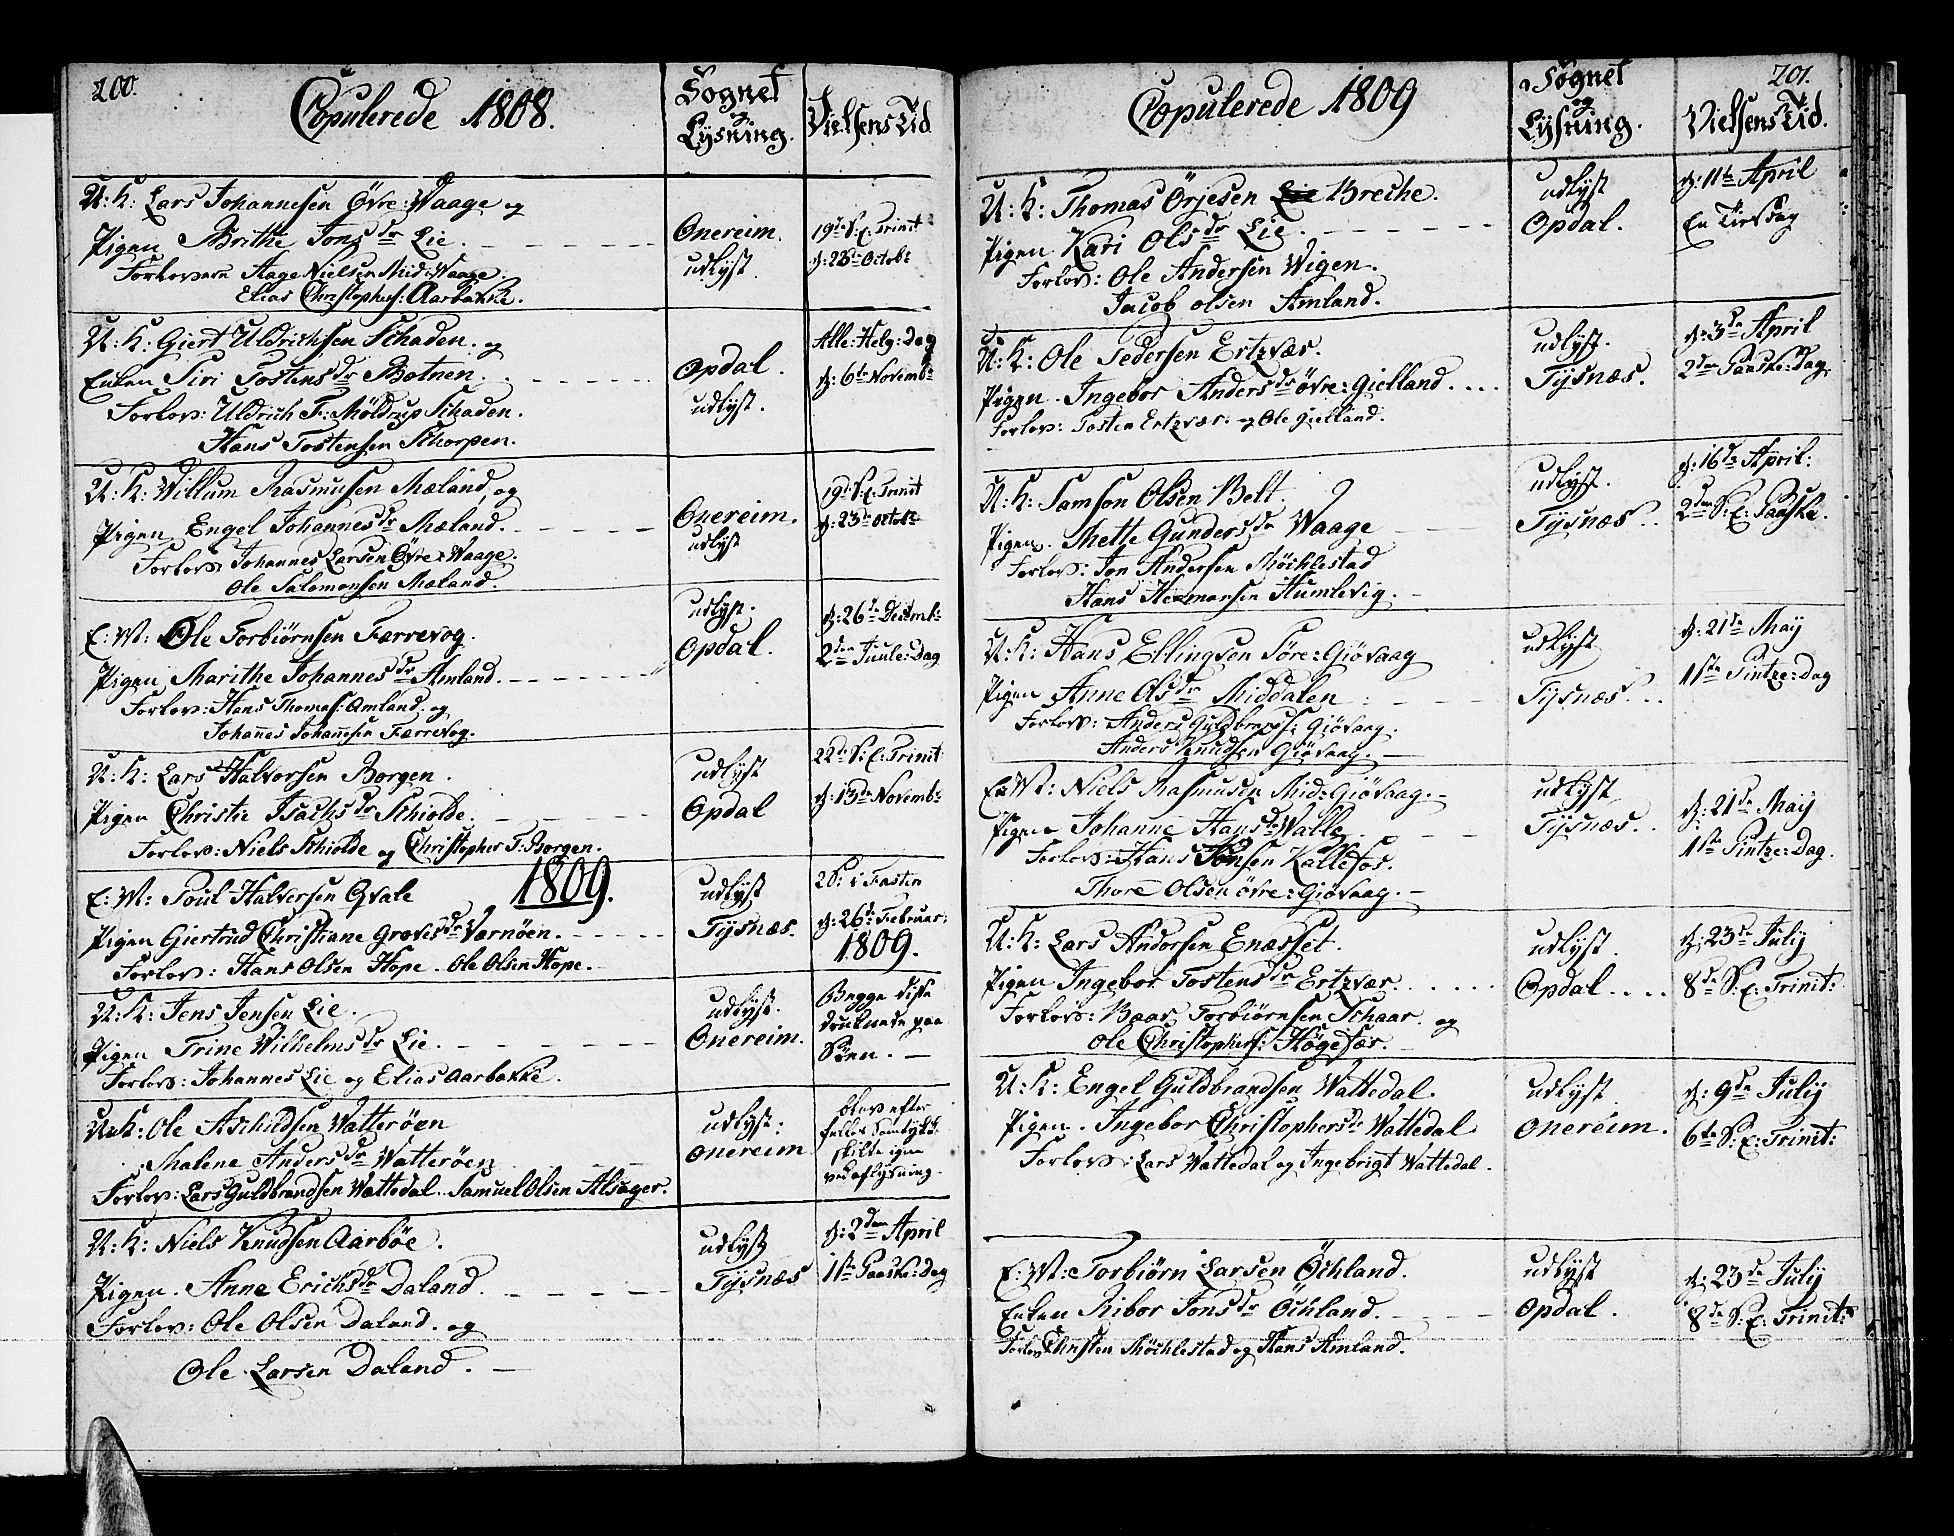 200.
Copulerede 1808.
Sognet
og
Lysning.
Vielsens Tid.
U: K: Lars Johannesen Øvre-Waage og
Pigen Brithe Jons dr Lie.
Forlovere Aage Nielsen Mid: Waage.
Elias Christophers: Aarbakke.
Onereim.
udlyst.
19de S. E. Trinit
d: 23de Octob:
U: K: Giert Uldrichsen Schaden. og
Enken Siri Tostens dr Botnen.
Forlov: Uldrich F: Möldrup Schaden.
Hans Tostensen Skorpen.
Opdal.
udlyst.
Alle-Helg: Dag
d: 6te Novemb:
U: K: Willum Rasmusen Mæland, og
Pigen Engel Johannes dr Mæland.
Forlov: Johannes Larsen Øvre-Waage.
Ole Salomonsen Mæland.
Onereim.
udlyst
19d S. E. Trinit
d: 23de Octob:
E: M: Ole Torbiørnsen Færrevog.
Pigen Marithe Johannes dr Amland.
Forlov: Hans Thomas: Amland. og
Johañes Johañesen Færrevog.
udlyst.
Opdal.
d: 26de Decemb:
2den Juule: Dag
U: K: Lars Halvorsen Borgen.
Pigen Christie Isachs dr Schiolde.
Forlov: Niels Schiolde og Christopher T: Borgen.
udlyst
Opdal
22de S: E: Trinit
d: 13de Novemb:
1809.
E: M: Poul Halversen Qvale
Pigen Giertrud Christiane Groves dr Varnöen.
Forlov: Hans Olsen Hope. Ole Olsen Hope.
udlyst
Tysnæs.
2 S: i Fasten
d: 26de Februar:
1809.
U: K: Jens Jensen Lie.
Pigen Trine Wilhelms dr Lie.
Forlov: Johannes Lie og Elias Aarbakke.
udlyst.
Onereim.
Begge disse
druknede paa
Söen.
U: K: Ole Aschildsen Watteröen
Malene Anders dr Watteröen
Forlov: Lars Guldbrandsen Wattedal. Samuel Olsen Alsager.
udlyst:
Onereim
blev efter
felles Samtykke
skilte igien
ved aflysning.
U: K: Niels Knudsen Aarböe.
Pigen. Anne Erichs dr Daland.
Forlov: Ole Olsen Daland. og
Ole Larsen Daland.
udlyst
Tysnæs
d: 2den April
1ste Paaske: Dag
201.
Copulerede 1809
Sognet
og
Lysning.
Vielsens Tid.
U: K: Thomas Örjesen Lie Breche.
Pigen Kari Ols dr Lie.
Forlov: Ole Andersen Wigen.
Jacob Olsen Amland.
udlyst
Opdal.
d: 11te April
En Tirsdag
U: K: Ole Pedersen Ertzvær.
Pigen. Ingebor Anders dr Øvre-Gielland.
Forlov: Tosten Ertzvær. og Ole Gielland.
udlyst.
Tysnæs.
d: 3de April
2den Paaske: Dag.
U: K: Samson Olsen Belt.
Pigen. Mette Gunders dr Waage
Forlov: Jon Andersen Möchlestad
Hans Hermansen Humlevig.
udlyst.
Tysnæs.
d: 16de April:
2den S: E: Paaske.
U: K: Hans Ellingsen Söre: Giövaag
Pigen Anne Ols dr Middalen
Forlov: Anders Guldbrands: Giövaag.
Anders Knudsen Giövaag.
udlyst
Tysnæs.
d: 21de May
1ste Pintze: Dag
E: M: Niels Rasmusen Mid: Giövaag.
Pigen Johanne Hans dr Walle
Forlov: Hans Tönsen Kallefos.
Thore Olsen Øvre: Giövaag.
udlyst
Tysnæs.
d: 21de May
1ste Pintze: Dag.
U: K: Lars Andersen Enæsset.
Pigen Ingebor Tostens dr Ertzvær.
Forlov: Baar Torbiörnsen Schaar. og
Ole Christophers: Högefær.
udlyst.
Opdal.
d: 23de July
8de S: E: Trinit:
U: K: Engel Guldbrandsen Wattedal.
Pigen. Ingebor Christophers dr Wattedal
Forlov: Lars Wattedal og Ingebrigt Wattedal.
udlyst.
Onereim.
d: 9de July
6te S: E: Trinit:
E: M: Torbiörn Larsen Öchland.
Enken Ribor Jons dr Öchland.
Forlov Christen Möchlestad og Hans Amland.
udlyst
Opdal.
d: 23de July
8de S: E: Trinit: